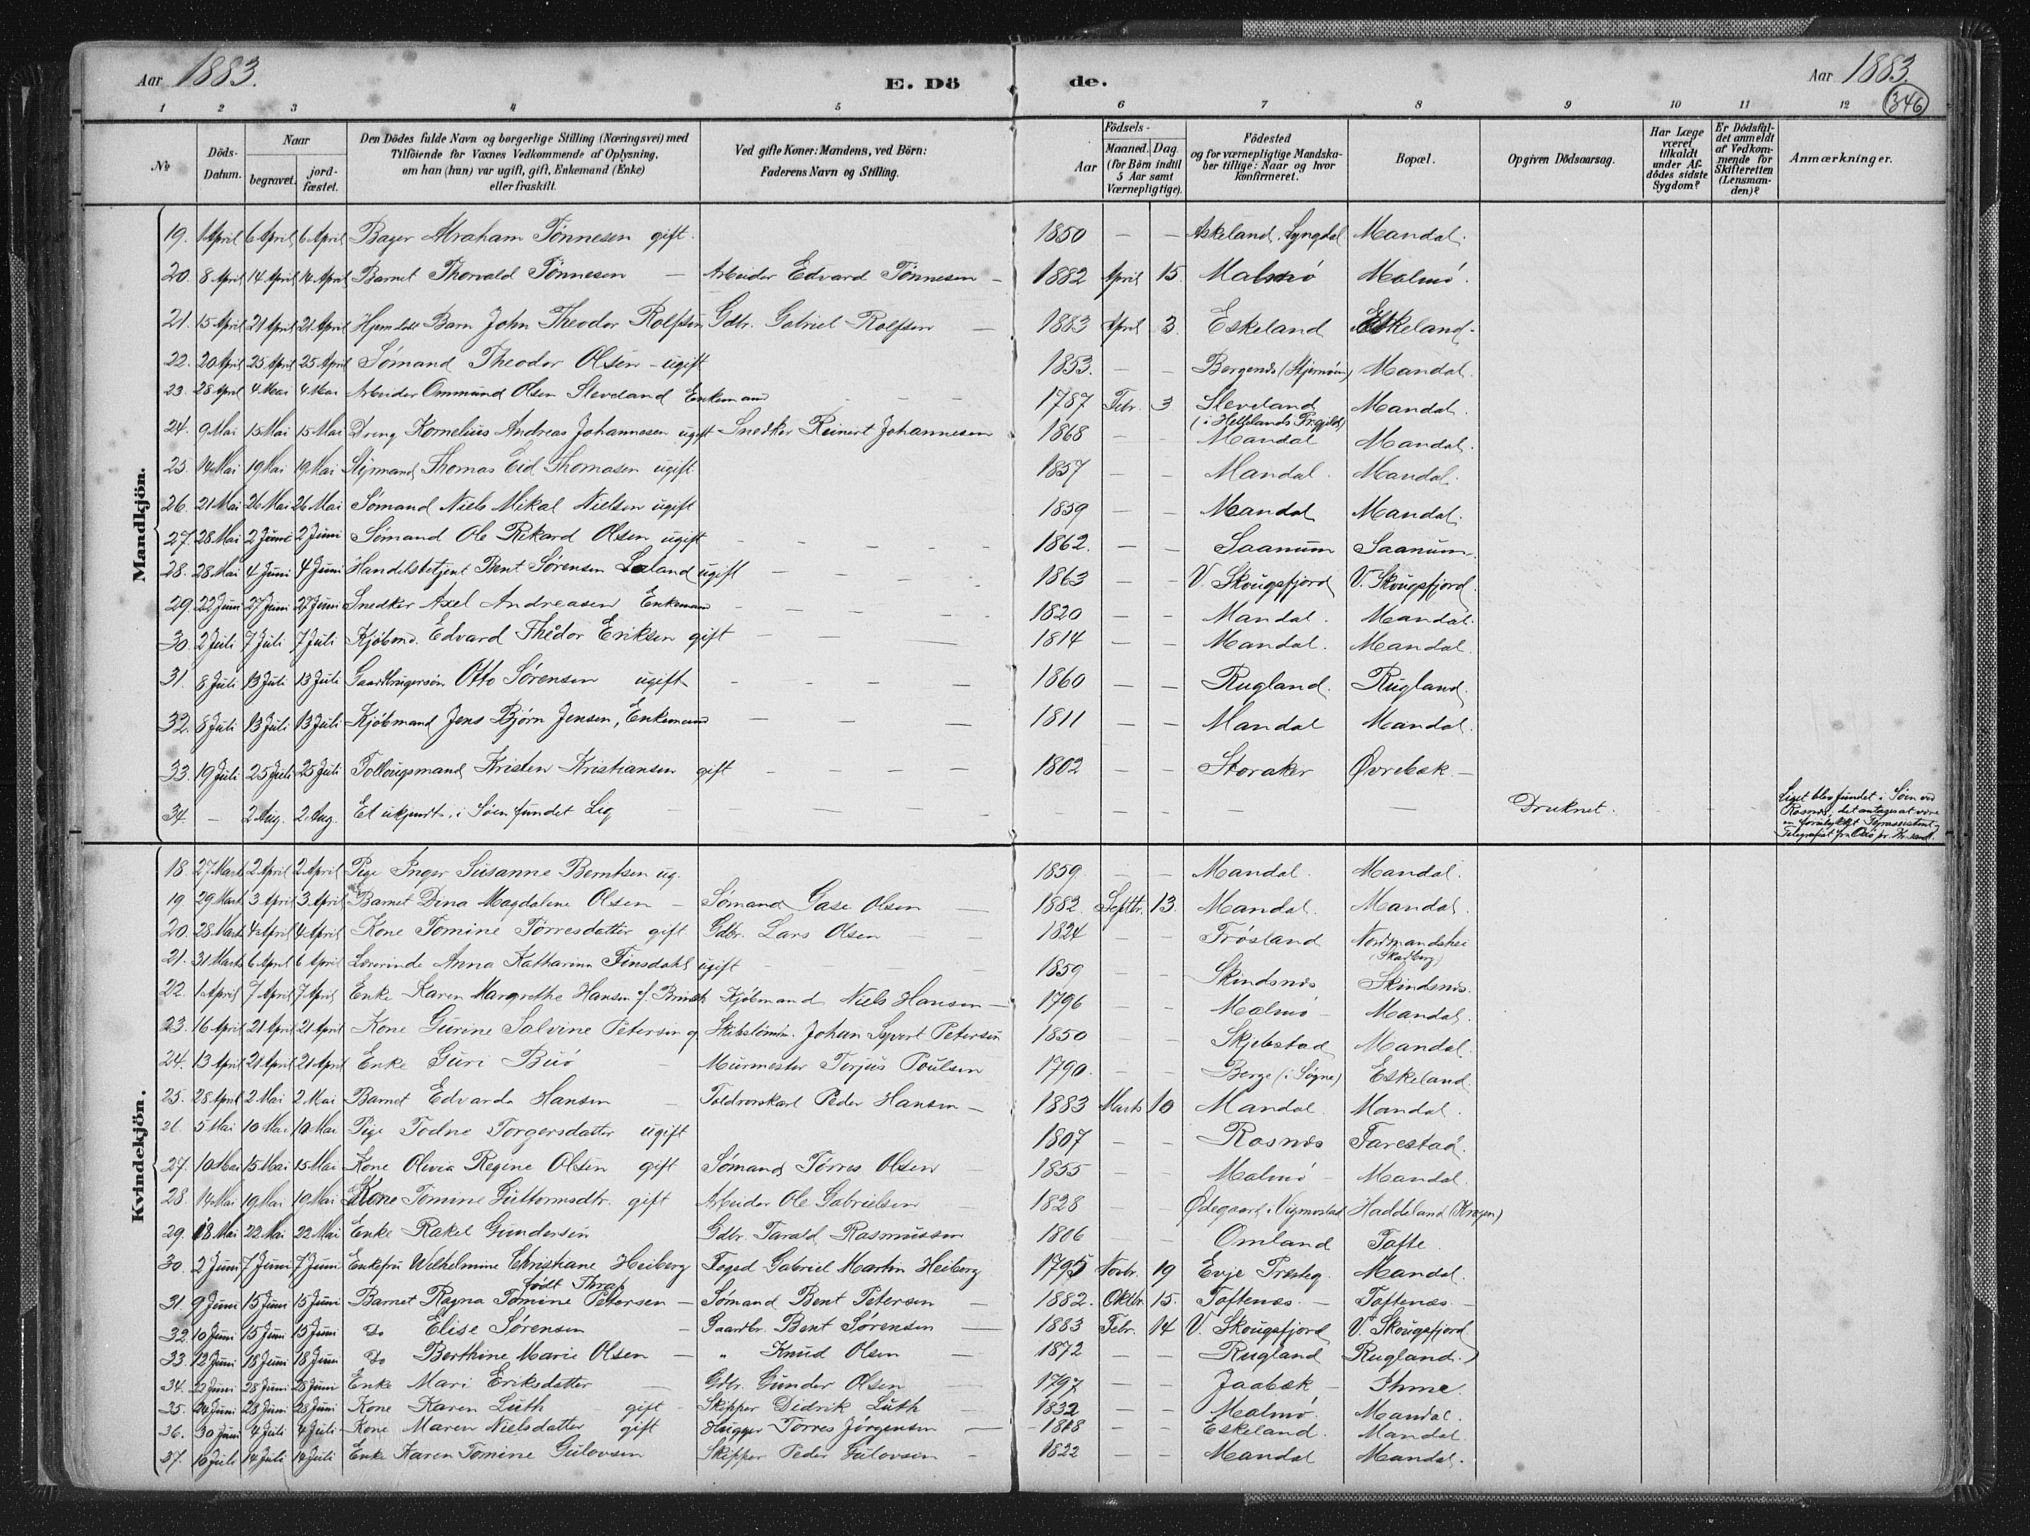 Aar 1883. E. Dö de. Aar 1883.
346
1 2 3 4 5 6 7 8 9 10 11 12
No
Döds-Datum.
Naar
begravet.
jord-fæstet.
Den Dödes fulde Navn og borgerlige Stilling (Næringsvei) med
Tilföiende for Voxnes Vedkommende af Oplysning,
om han (hun) var ugift, gift, Enkemand (Enke)
eller fraskilt.
Ved gifte Koner: Mandens, ved Börn:
Faderens Navn og Stilling.
Födsels-
Aar
Maaned. Dag.
(for Börn indtil
5 Aar samt
Værnepligtige).
Födested
og for værnepligtige Mandska-
ber tillige: Naar og hvor
konfirmeret.
Bopæl.
Opgiven Dödsaarsag.
Har Læge
været
tilkaldt
under Af-
dödes sidste
Sygdom?
Er Dödsfal-
det anmeldt
af Vedkom-
mende for
Skifteretten
(Lensman-
den)?
Anmærkninger.
Mandkjön.
19. 1 April 6 April 6 April Bager Abraham Tönnesen gift. 1850 — — Askeland, Lyngdal Mandal.
20. 8 April 14 April 14 April Barnet Thorvald Tönnesen — Arbeider Edvard Tönnesen — 1882 April 15. Malmö Malmö.
21. 15 April 21 April 21 April Hjemdöbt Barn John Theodor Rolfsen Gdbr. Gabriel Rolfsen — 1883 April 3. Eskeland Eskeland.
22. 20 April 25 April 25 April Sömand Theodor Olsen — ugift 1853. — — Bergenes (Stjernöen) Mandal.
23. 28 April 4 Mai 4 Mai Arbeider Ommund Olsen Sleveland Enkemand — — — 1787 Febr. 3 Sleveland (i Hellelands Prgjeld) Mandal.
24. 9 Mai 15 Mai 15 Mai Dreng Kornelius Andreas Johannesen ugift Snedker Reinert Johannesen 1868 — — Mandal Mandal.
25. 14 Mai 19 Mai 19 Mai Styrmand Thomas Eid Thomasen ugift 1857 — — Mandal. Mandal.
26. 21 Mai 26 Mai 26 Mai Sömand Niels Mikal Nielsen ugift 1859 — — Mandal Mandal.
27. 28 Mai 2 Juni 2 Juni Sömand Ole Rikard Olsen ugift — — — 1862. — — Saanum Saanum.
28. 28 Mai 4 Juni 4 Juni Handelsbetjent Bent Sörensen Laland ugift — — — 1863 — — V. Skougsfjord V. Skougsfjord.
29. 22 Juni 27 Juni 27 Juni Snedker Axel Andreasen Enkemand — — — 1820 — — Mandal. Mandal.
30. 2 Juli 7 Juli 7 Juli Kjöbmd. Edvard Thedor Eriksen gift — — — 1814 — — Mandal. Mandal.
31. 8 Juli 13 Juli 13 Juli Gaardbrugersön Otto Sörensen ugift — — — 1860 — — Rugland. Rugland.
32. 8 Juli 13 Juli 13 Juli Kjöbmand Jens Björn Jensen, Enkemand — — — 1811 — — Mandal Mandal.
33. 19 Juli 25 Juli 25 Juli Follougsmand Kristen Kristiansen gift — — — 1802 — — Storaker Øvrebæk —
34. — 2 Aug. 2 Aug. Et ukjendt, i Söen fundet Lig — — — — — Druknet. Liget blev fundet i Söen ved
Rosnæs, det antages at være
Kvindekjön.
18. 27 Marts 2 April 2 April Pige Inger Susanne Berntsen ug. 1859. — — Mandal. Mandal.
19 29 Marts 3 April 3 April Barnet Dina Magdalene Olsen — Sömand Gase Olsen — 1882. Septbr. 13. Mandal. Mandal.
20. 28 Marts 4 April 4 April Kone Tomine Törresdatter gift Gdbr. Lars Olsen — — 1824 — — Frösland Nordmandshei (Skadberg)
21. 31 Marts 6 April 6 April Lærerinde Anna Katharina Finsdahl ugift — — — 1859 — — Skindsnæs Skindsnæs.
22. 1 April 7 April 7 April Enke Karen Margrethe Hansen f. Brinch Kjöbmand Niels Hansen — 1796 — — Malmö — Mandal.
23. 16 April 21 April 21 April Kone Gurine Salvine Petersen g. Skibstömm. Johan Syvert Petersen 1850 — — Skjebstad Mandal.
24. 13 April 21 April 21 April Enke Guri Buö — Murmester Torjus Poulsen 1790. — — Berge (i Søgne) Eskeland.
25. 28 April 2 Mai 2 Mai Barnet Edvarda Hansen — Toldrorskarl Peder Hansen — 1883 Marts 10 Mandal. Mandal.
26. 5 Mai 10 Mai 10 Mai Pige Todne Torgersdatter ugift 1807 — — Rosnæs Farestad.
27. 10 Mai 15 Mai 15 Mai Kone Olivia Regine Olsen gift Sömand Törres Olsen — 1855 — — Malmö — Mandal.
28. 14 Mai 19 Mai 19 Mai Kone Tomine Guttormsdtr. gift Arbeider Ole Gabrielsen — 1828 — — Ødegaard i Vigmostad Haddeland (Krogen)
29. 18 Mai 22 Mai 22 Mai Enke Rakel Gundersen Gdbr. Tarald Rasmussen 1806 — — Omland Tofte.
30. 2 Juni 7 Juni 7 Juni Enkefru Wilhelmine Christiane Heiberg födt Thrap Foged Gabriel Martin Heiberg 1795 Novbr. 19 Evje Præsteg. Mandal.
31. 9 Juni 15 Juni 15 Juni Barnet Ragna Tomine Petersen — Sömand Bent Petersen — 1882. Oktbr. 15. Toftenæs. — Toftenæs. —
32. 10 Juni 15 Juni 15 Juni Do Elise Sörensen — Gaardbr. Bent Sörensen — 1883 Febr. 14 V. Skougsfjord V. Skougsfjord
33. 12 Juni 18 Juni 18 Juni Do Berthine Marie Olsen — „ Knud Olsen — 1872 — — Rugland Rugland.
34. 22 Juni 28 Juni 28 Juni Enke Mari Eriksdatter — Gdbr. Gunder Olsen — 1797 — — Jaabæk — Ihme.
35. 24 Juni 28 Juni 28 Juni Kone Karen Lüth — gift — Skipper Didrik Lüth — 1832 — — Malmö. Mandal.
36. 30 Juni 4 Juli 4 Juli Kone Maren Nielsdatter gift Hugger Törres Jörgensen — 1818 — — Eskeland. Mandal.
37. 10 Juli 14 Juli 14 Juli Enke Karen Tomine Gulovsen Skipper Peder Gulovsen — 1822 — — Mandal Mandal.